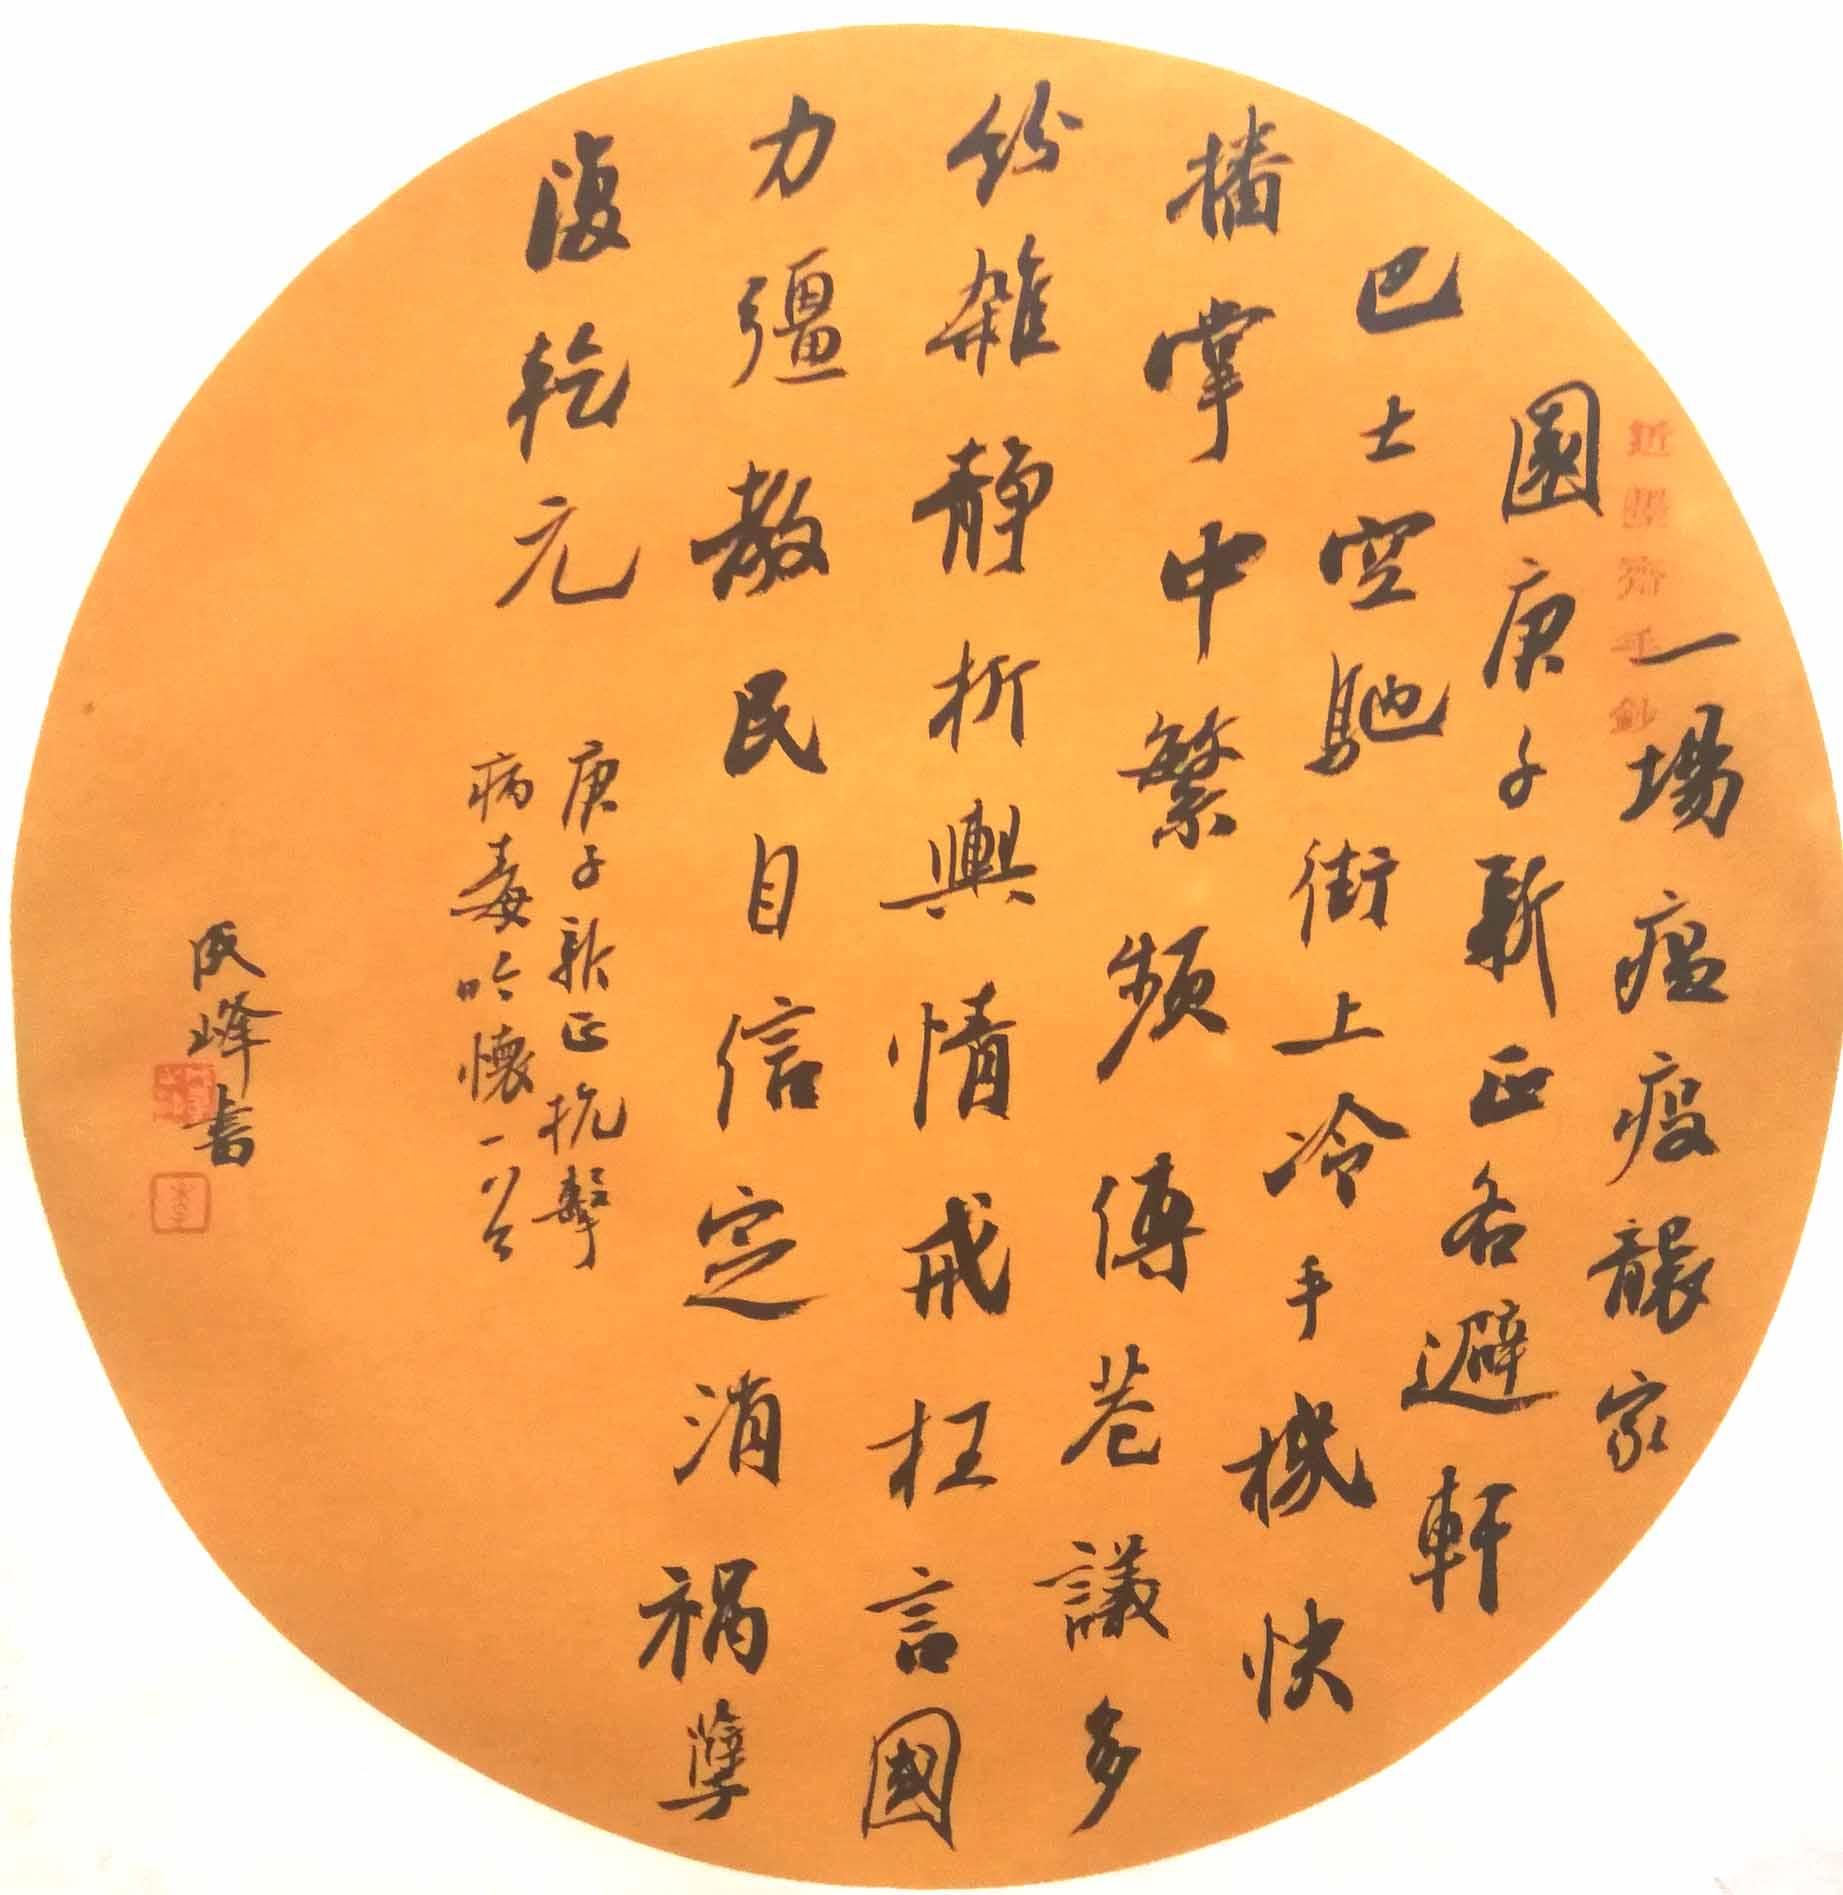 近墨齋手鈔
一場瘟疫襲家
園庚子新正各避軒
巴士空馳街上冷手機快
播掌中繁頻傳巷議多
紛雜静析輿情戒枉言國
力彊教民自信定消禍孽
復乾元
庚子新正抗擊
病毒吟懷一首
峰書